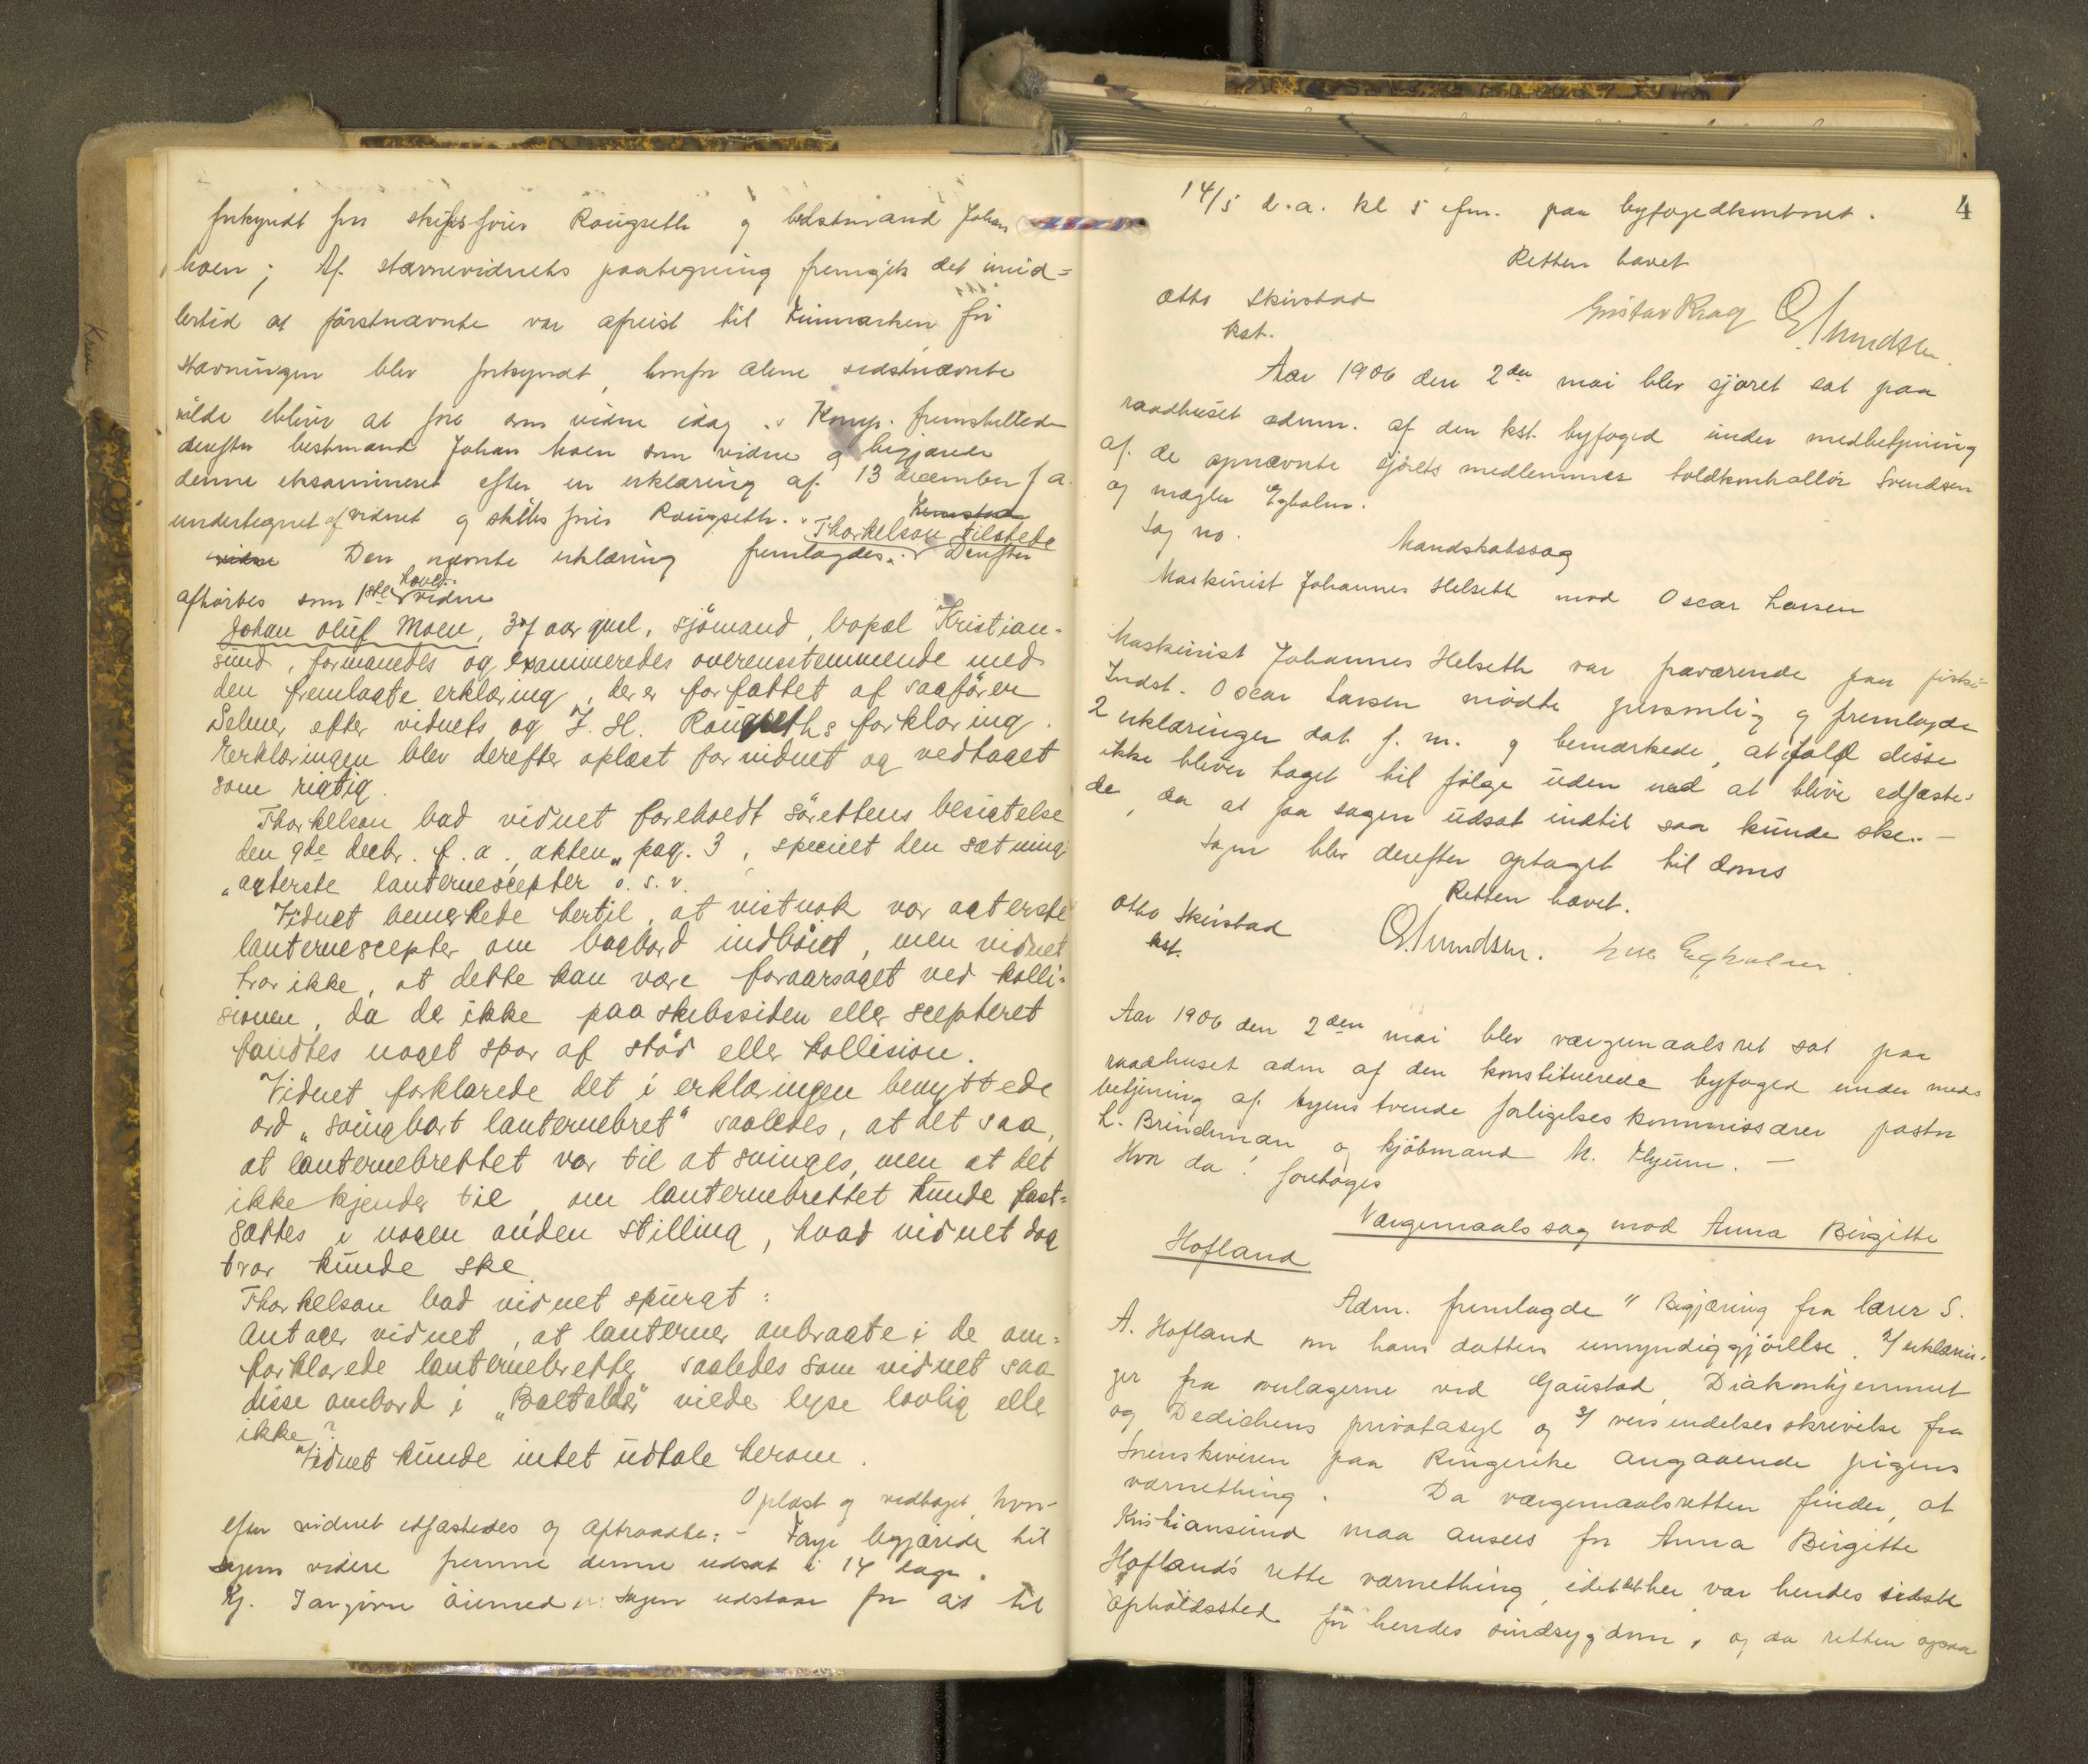 forkyndt for skibsfører Rougseth og bedstmand Johan
Moen; Af stævnevidnets paategning fremgik det imid=
lertid at förstnævnte var afreist til Finmarken för
stævningen blev forkyndt, hvorfor alene sidstnævnte
vilde blive at före som vidne idag. Komp. fremstillede
derefter bestmand Johan Moen som vidne og begjærede
denne eksamineret efter en erklæring af 13 december f a.
undertegnet af vidnet og skibsförer Rougseth.
Thorkelson tilstede
Den nævnte erklæring fremlagdes. Derefter
afhörtes som 1ste hoved vidne
Johan Oluf Moen, 37 aar gml, sjömand, bopæl Kristian-
sund, formanedes og examineredes overensstemmende med
den fremlagte erklæring, der er forfattet af sagförer
Selmer efter vidnets og J. H. Rougseths forklaring.
Erklæringen blev derefter oplæst for vidnet og vedtaget
som rigtig.
Thorkelson bad vidnet foreholdt sörettens besigtelse
den 9de decbr. f. a., akten pag. 3, specielt den sætning
"agterste lanternescepter o. s. v.
Vidnet bemerkede hertil, at vistnok var agterste
lanternescepter om bagbord indböiet, men vidnet
tror ikke, at dette kan være foraarsaget ved kolli-
sionen, da der ikke paa skibssiden eller scepteret
fandtes noget spor af stöd eller kollision.
Vidnet forklarede det i erklæringen benyttede
ord "svingbart lanternebret" saaledes, at det saa,
at lanternebrettet var til at svinges, men at det
ikke kjender til, om lanternebrettet kunde fast=
sættes i nogen anden stilling, hvad vidnet dog
tror kunde ske.
Thorkelson bad vidnet spurgt:
Antager vidnet, at lanterner anbragte i de om=
forklarede lanternebretter saaledes som vidnet saa
disse ombord i "Baltalder" vilde lyse lovlig eller
ikke?
Vidnet kunde intet udtale herom.
Oplæst og vedtaget, hvor-
efter vidnet edfæstedes og aftraadte: - Faye begjærede til
sagens videre fremme denne udsat i 14 dage.
Kj. Iangivne öiemed sagen udstaar for at til
14/5 d.a. kl 5 efm. paa byfogedkontoret.
4
Retten hævet
Otto Skirstad
kst.
Gustav Krag
Aar 1906 den 2den mai blev sjöret sat paa
raadhuset adm. af den kst. byfoged under medbetjening
af de opnævnte sjörets medlemmer toldkontrollör Svendsen
og mægler Egholm.
Sag no.
Mandskabssag
Maskinist Johannes Helseth mod Oscar Larsen
Maskinist Johannes Helseth var fraværende paa fiske
Indst. Oscar Larsen mödte personlig og fremlagde
2 erklæringer dat. f. m. og bemærkede, at ifald disse
ikke bliver taget til fölge uden ved at blive edfæste-
de, da at faa sagen udsat indtil saa kunde ske. -
Sagen blev derefter optaget til doms
Retten hævet.
Otto Skirstad
kst.
Egholm
Aar 1906 den 2den mai blev værgemaalsret sat paa
raadhuset adm af den konstituerede byfoged under med
betjening af byens tvende forligelseskommissærer pastor
L. Brinchman og kjöbmand M. Hjum. -
Hvor da: foretoges
Værgemaalssag mod Anna Birgitte
Hofland
Adm. fremlagde 1/ Begjæring fra lærer S.
A. Hofland om hans datters umyndiggjörelse. 2/ erklærin-
ger fra overlægerne ved Gaustad, Diakonhjemmet
og Dedichens privatasyl og 3/ versendelsesskrivelse fra
Sorenskriveren paa Ringerike angaaende pigens
værnething. Da værgemaalsretten finder, at
Kristiansund maa ansees for Anna Birgitte
Hoflands rette værnething, idet det her var hendes sidste
opholdssted för hendes sindsygdom, og da retten ogsaa